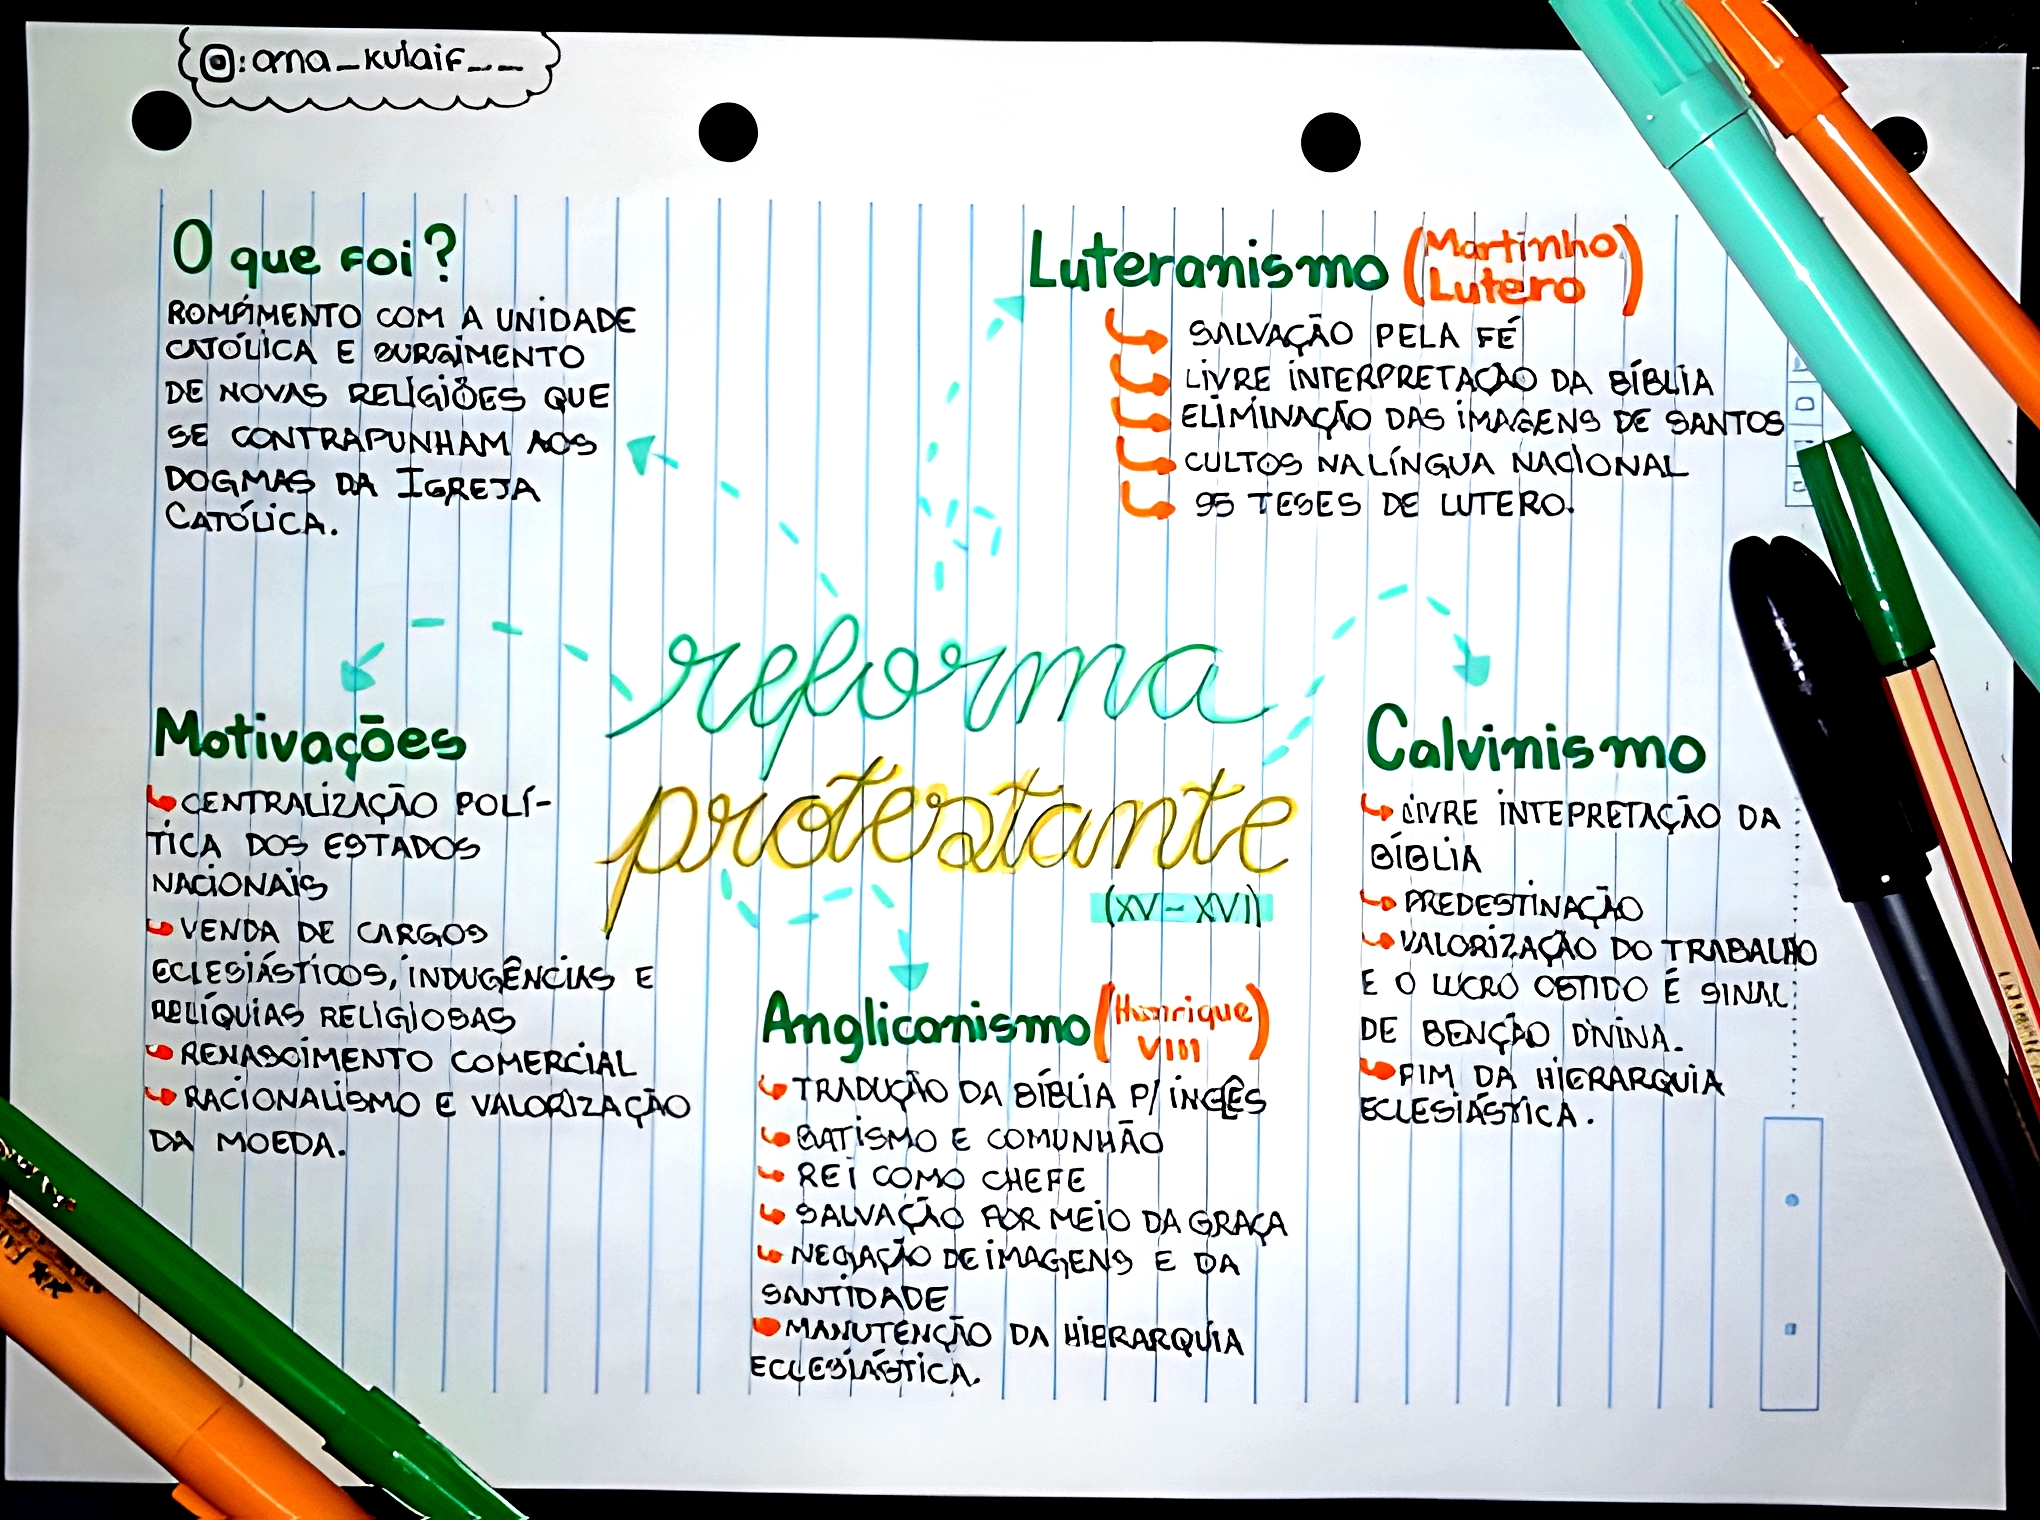 :ana_kulaif__
O que foi?
ROMPIMENTO COM A UNIDADE
CATÓLICA E SURGIMENTO
DE NOVAS RELIGIÕES QUE
SE CONTRAPUNHAM AOS
DOGMAS DA IGREJA
CATÓLICA.
Luteranismo (Martinho
Lutero)
SALVAÇÃO PELA FÉ
LIVRE INTERPRETAÇÃO DA BÍBLIA
ELIMINAÇÃO DAS IMAGENS DE SANTOS
CULTOS NA LÍNGUA NACIONAL
95 TESES DE LUTERO.
reforma
protestante
(XV-XVI)
Motivações
CENTRALIZAÇÃO POLÍ-
TICA DOS ESTADOS
NACIONAIS
VENDA DE CARGOS
ECLESIÁSTICOS, INDUGÊNCIAS E
RELÍQUIAS RELIGIOSAS
RENASCIMENTO COMERCIAL
RACIONALISMO E VALORIZAÇÃO
DA MOEDA.
Anglicanismo (Henrique
VIII)
TRADUÇÃO DA BÍBLIA P/ INGÊS
BATISMO E COMUNHÃO
REI COMO CHEFE
SALVAÇÃO POR MEIO DA GRAÇA
NEGAÇÃO DE IMAGENS E DA
SANTIDADE
MANUTENÇÃO DA HIERARQUIA
ECLESIÁSTICA.
Calvinismo
LIVRE INTEPRETAÇÃO DA
BÍBLIA
PREDESTINAÇÃO
VALORIZAÇÃO DO TRABALHO
E O LUCRO OBTIDO É SINAL
DE BENÇÃO DIVINA.
FIM DA HIERARQUIA
ECLESIÁSTICA.